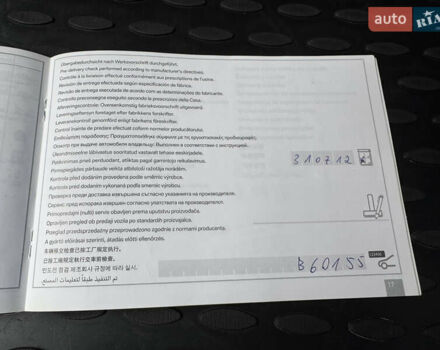 auto RIA
Übergabedurchsicht nach Werksvorschrift durchgeführt.
Pre-delivery check performed according to manufacturer's directives.
Contrôle à la livraison effectué conformément aux prescriptions de l'usine.
Revisión de entrega efectuada según especificación de fábrica.
Revisão de entrega executada de acordo com as determinações de fabricante.
Controllo preconsegna eseguito secondo le prescrizioni della Casa.
Afleveringscontrole: Overeenkomstig fabrieksvoorschrift uitgevoerd.
Leveringseftersyn foretaget efter fabrikkens forskrifter.
Leveranskontroll genomförd enligt fabrikens föreskrifter.
Control înainte de predare efectuat coform normelor producătorului.
Осмотр при выдаче автомобиля владельцу: Выполнен в соответствии с инструкцией.
Üleandmiseelne läbivaatus sooritatud vastavalt tehase eeskirjadele.
Patikrinimas prieš perduodant, atliktas pagal gamintojo reikalavimus.
310712
Pirmspiegādes pārbaude veikta atbilstoši ražotāja norādēm.
Kontrola před dodáním provedena podle směrnic výrobce.
Kontrola pred dodaním vykonaná podľa smerníc výrobcu.
Проверка преди доставка извършена съгласно указанията на производителя.
Сервис пред испорака извршен согласно упатствата на производителот.
Primopredajni (nulti) servis obavljen prema uputstvu proizvođača.
Opravljen pregled ob predaji vozila po standardih proizvajalca.
Przegląd przedsprzedażny przeprowadzono zgodnie z normami producenta.
A gyártó előírásai szerinti, átadás előtti ellenőrzés.
123456
B60155
17